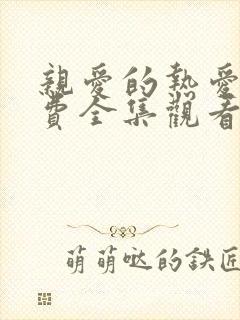 親愛的熱愛
費全集觀看
萌萌哒的鉄匠